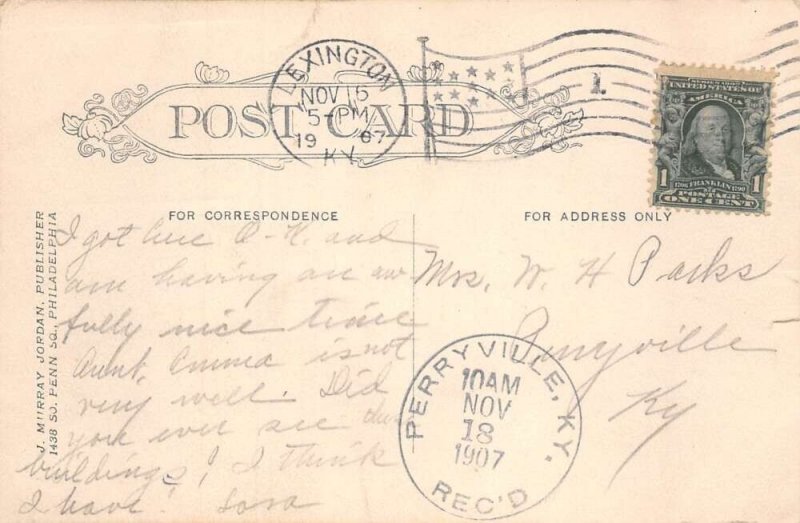 POST CARD
LEXINGTON
NOV 15
5-PM
1907
KY
1
UNITED STATES OF
AMERICA
1706 FRANKLIN 1790
1 POSTAGE 1
ONE CENT
FOR CORRESPONDENCE
FOR ADDRESS ONLY
J. MURRAY JORDAN, PUBLISHER
1438 SO. PENN SQ., PHILADELPHIA
I got here O-K. and
am having an aw
fully nice time
Aunt Emma is not
very well. Did
you ever see the
buildings! I think
I have!
Mrs. W. H Parks
Perryville
Ky
PERRYVILLE, KY.
10AM
NOV
18
1907
REC'D